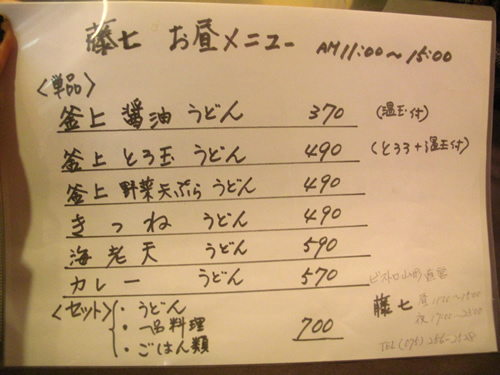 藤七 お昼メニュー AM11:00〜15:00
〈単品〉
釜上 醤油 うどん 370 (温玉付)
釜上 とろ玉 うどん 490 (とろろ+温玉付)
釜上 野菜天ぷら うどん 490
きつね うどん 490
海老天 うどん 590
カレー うどん 570
〈セット〉・うどん
・一品料理 700
・ごはん類
ビストロ山田直営
藤七
TEL (075)